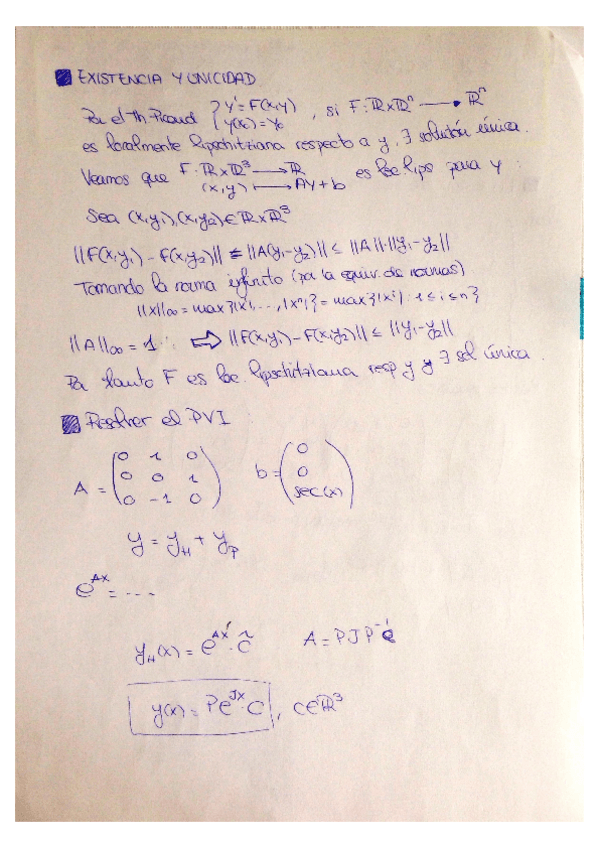 EXISTENCIA Y UNICIDAD
Por el Th. Picard { y' = F(x,y) y(x₀) = y₀ , si F: ℝxℝⁿ → ℝⁿ
es localmente lipschitziana respecto a y, ∃ solución única.
Veamos que F: ℝxℝ³ → ℝ (x,y) ↦ Ay + b es loc lips para y
Sea (x,y₁), (x,y₂) ∈ ℝxℝ³
||F(x,y₁) - F(x,y₂)|| ≤ ||A(y₁-y₂)|| ≤ ||A|| · ||y₁-y₂||
Tomando la norma infinito (por la equiv. de normas)
||x||∞ = max{|x¹|, ..., |xⁿ|} = max{|xⁱ| : 1 ≤ i ≤ n}
||A||∞ = 1 ⇒ ||F(x,y₁) - F(x,y₂)|| ≤ ||y₁-y₂||
Por tanto F es loc. lipschitziana resp y y ∃ sol única.
Resolver el PVI
A = ( 0 1 0 ; 0 0 1 ; 0 -1 0 ) b = ( 0 ; 0 ; sec(x) )
y = y_H + y_P
e^{Ax} = ....
y_H(x) = e^{Ax} · c̃ A = PJP⁻¹
y(x) = Pe^{Jx} · C , C ∈ ℝ³